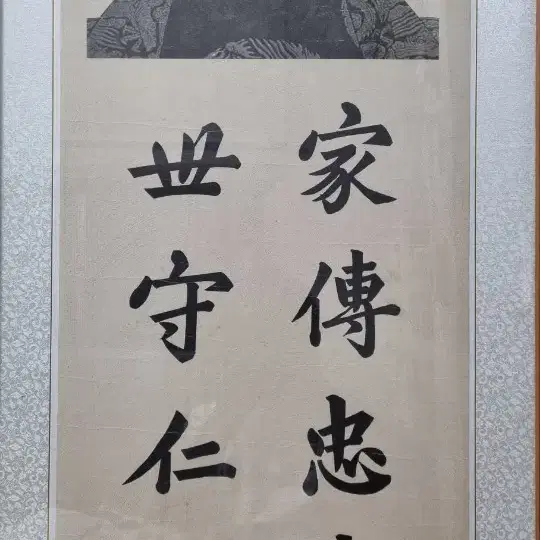 家傳忠
世守仁